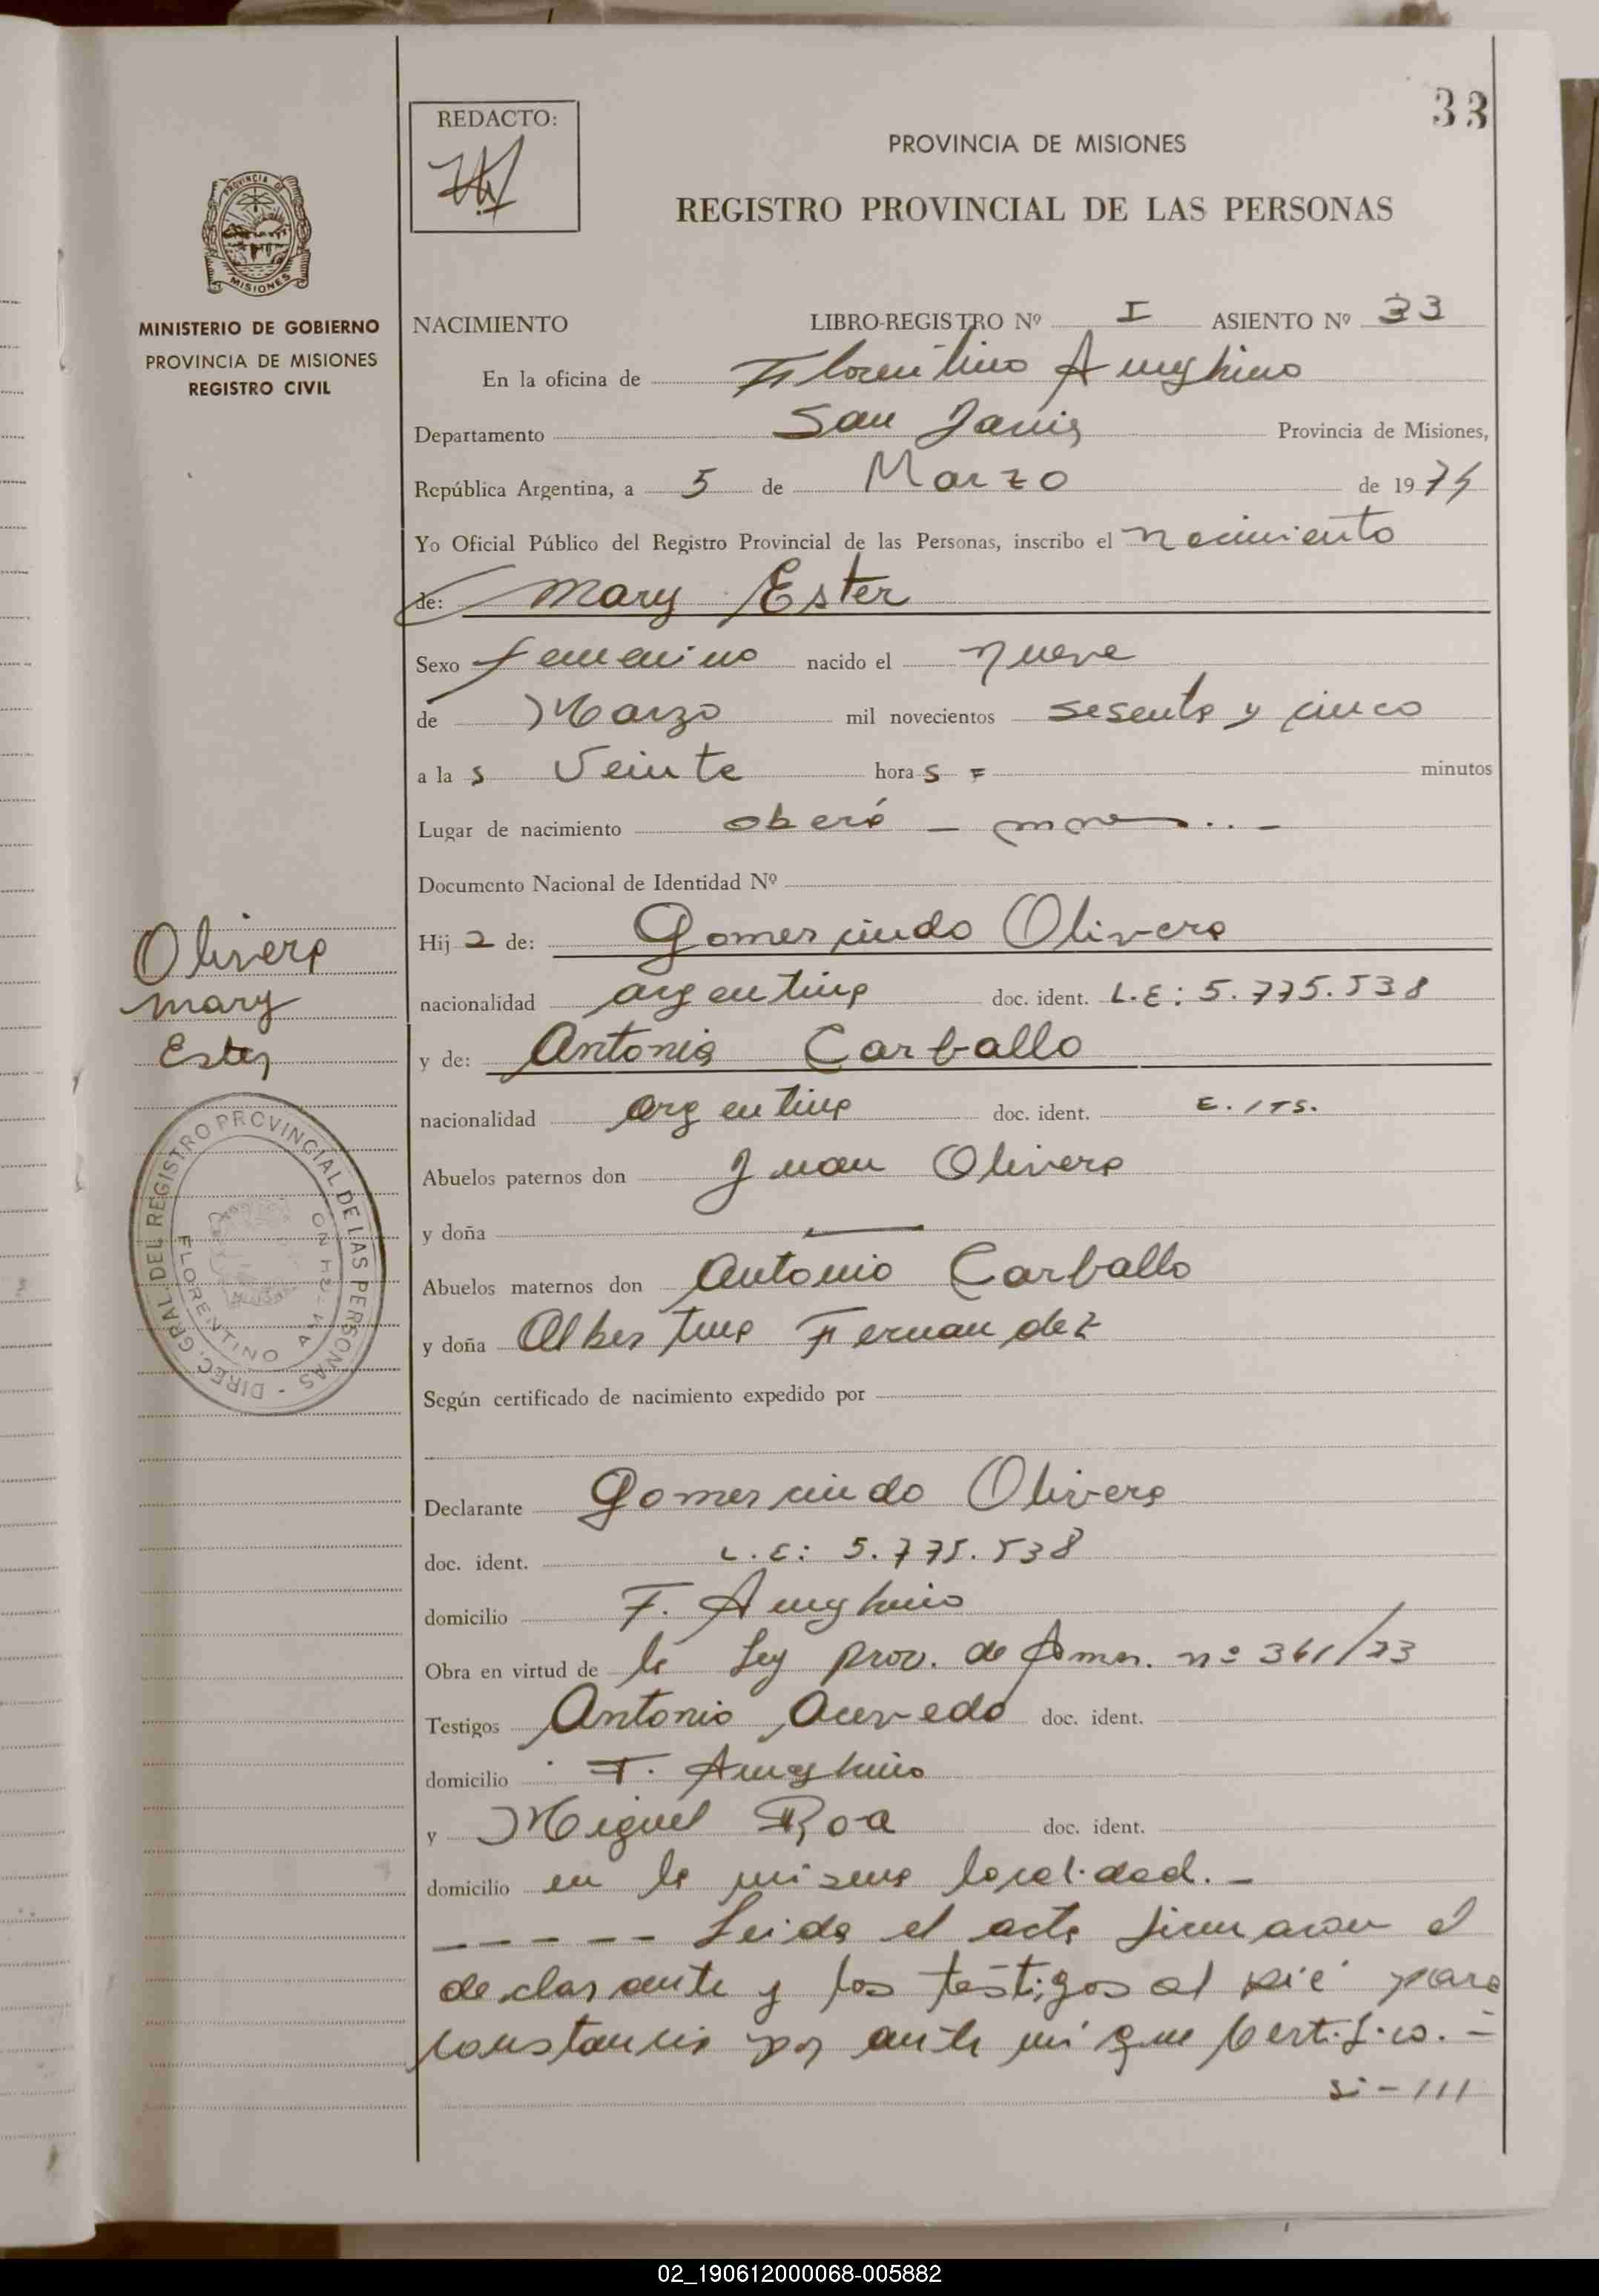 33
REDACTO:
PROVINCIA DE MISIONES
REGISTRO PROVINCIAL DE LAS PERSONAS
PROVINCIA DE
MISIONES
MINISTERIO DE GOBIERNO
PROVINCIA DE MISIONES
REGISTRO CIVIL
NACIMIENTO LIBRO-REGISTRO Nº I ASIENTO Nº 33
En la oficina de Florentino Ameghino
Departamento San Javier Provincia de Misiones,
República Argentina, a 5 de Marzo de 1974
Yo Oficial Público del Registro Provincial de las Personas, inscribo el nacimiento
de: Mary Ester
Sexo femenino nacido el nueve
de Marzo mil novecientos sesenta y cinco
a la s veinte hora s = minutos
Lugar de nacimiento oberá -
Documento Nacional de Identidad Nº
Hij a de: Gomercindo Olivera
nacionalidad argentina doc. ident. L.E: 5.775.538
y de: Antonia Carballo
nacionalidad argentina doc. ident.
Abuelos paternos don Juan Olivera
y doña —
Abuelos maternos don Antonio Carballo
y doña Albertina Fernandez
Según certificado de nacimiento expedido por
Declarante Gomercindo Olivera
doc. ident. L.E: 5.775.538
domicilio F. Ameghino
Obra en virtud de la Ley prov. de Amn. nº 361/73
Testigos Antonio Acevedo doc. ident.
domicilio F. Ameghino
y Miguel Roa doc. ident.
domicilio en la misma localidad. -
- - - - - Leida el acta firmaron el
declarante y los testigos al pié para
constancia por ante mí que certifico. =
si - ///
Olivera
Mary
Ester
DIREC. GRAL. DEL REGISTRO PROVINCIAL DE LAS PERSONAS
FLORENTINO AMEGHINO
02_190612000068-005882